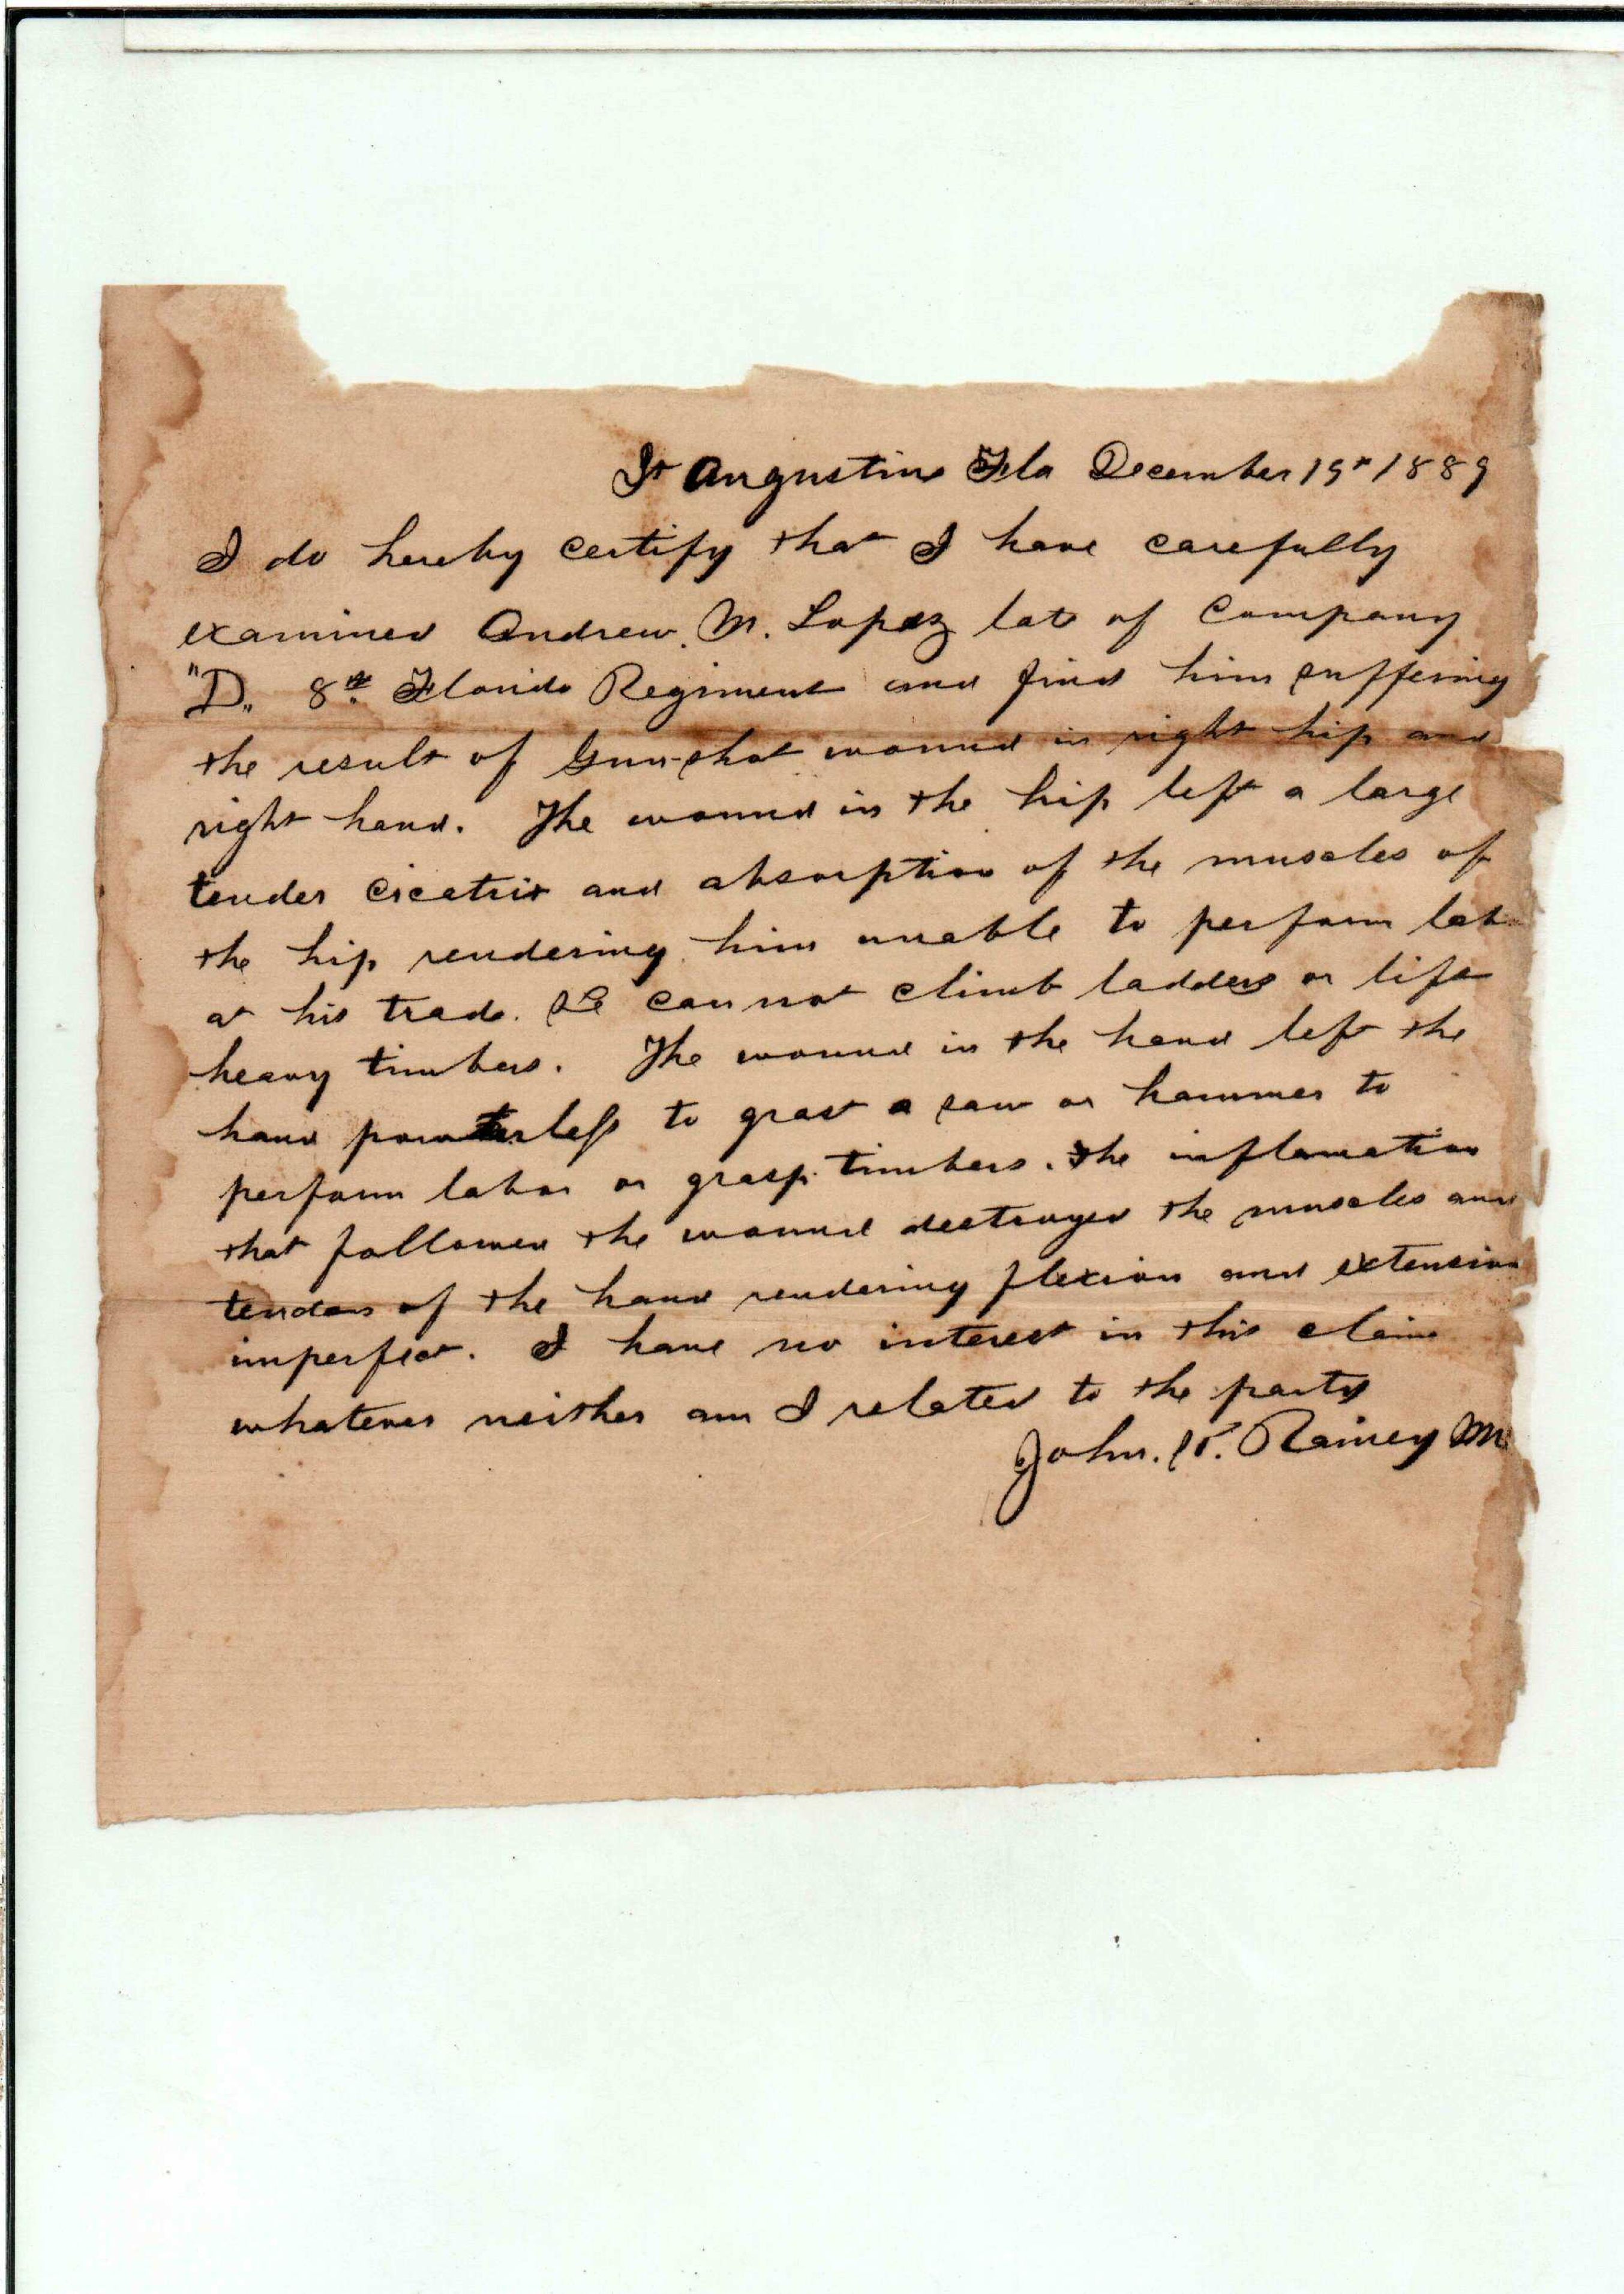 St Augustine Fla December 19th 1889
I do hereby certify that I have carefully
examined Andrew. M. Lopez late of Company
"D" 8th Florida Regiment and find him suffering
the result of Gun-shot wound in right hip and
right hand. The wound in the hip left a large
tender cicatrix and absorption of the muscles of
the hip rendering him unable to perform lab
at his trade. He can not climb ladders or lift
heavy timbers. The wound in the hand left the
hand powerless to grasp a saw or hammer to
perform labor or grasp timbers. The inflamation
that followed the wound destroyed the muscles and
tendons of the hand rendering flexion and extension
imperfect. I have no interest in this claim
whatever neither am I related to the party
John. Rainey M